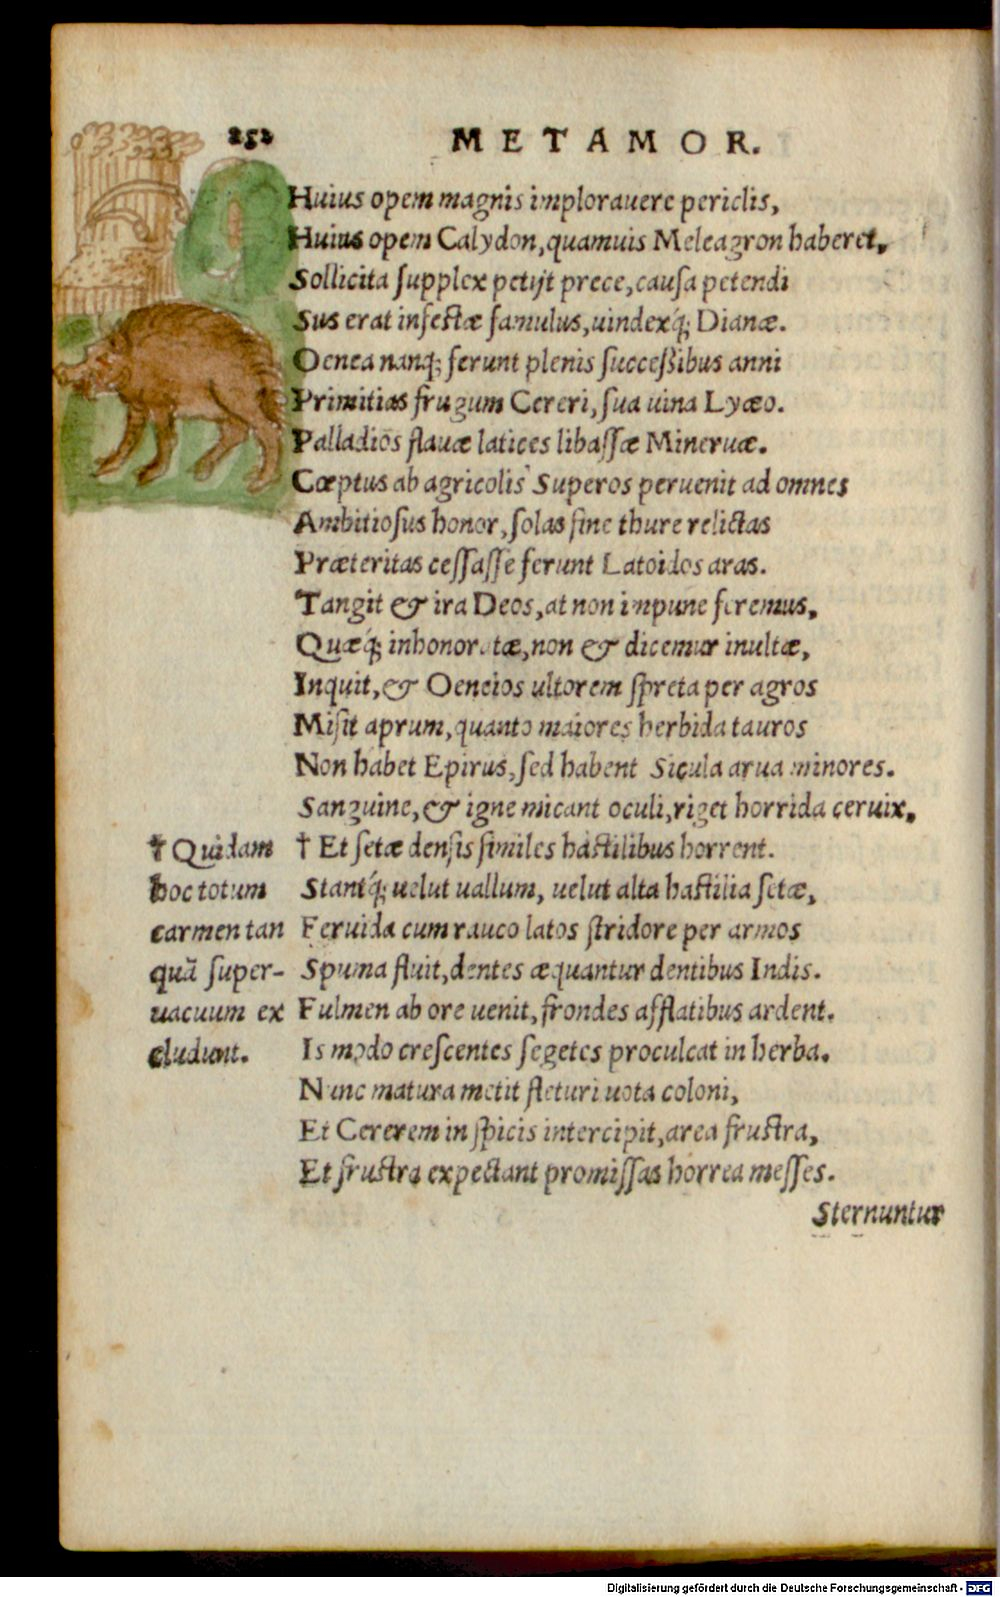 252
METAMOR.
Huius opem magnis implorauere periclis,
Huius opem Calydon, quamuis Meleagron haberet,
Sollicita supplex petijt prece, causa petendi
Sus erat infestæ famulus, uindexq́; Dianæ.
Oenea nanq; ferunt plenis successibus anni
Primitias frugum Cereri, sua uina Lyæo.
Palladios flauæ latices libasse Mineruæ.
Cœptus ab agricolis Superos peruenit ad omnes
Ambitiosus honor, solas sine thure relictas
Præteritas cessasse ferunt Latoidos aras.
Tangit & ira Deos, at non impune feremus,
Quæq́; inhonoratæ, non & dicemur inultæ,
Inquit, & Oeneios ultorem spreta per agros
Misit aprum, quanto maiores herbida tauros
Non habet Epirus, sed habent Sicula arua minores.
Sanguine, & igne micant oculi, riget horrida ceruix,
† Et setæ densis similes hastilibus horrent.
Stantq́; uelut uallum, uelut alta hastilia setæ,
Feruida cum rauco latos stridore per armos
Spuma fluit, dentes æquantur dentibus Indis.
Fulmen ab ore uenit, frondes afflatibus ardent.
Is modo crescentes segetes proculcat in herba.
Nunc matura metit fleturi uota coloni,
Et Cererem in spicis intercipit, area frustra,
Et frustra expectant promissas horrea messes.
Sternuntur
† Quidam
hoc totum
carmen tan
quã super-
uacuum ex
cludunt.
Digitalisierung gefördert durch die Deutsche Forschungsgemeinschaft - DFG